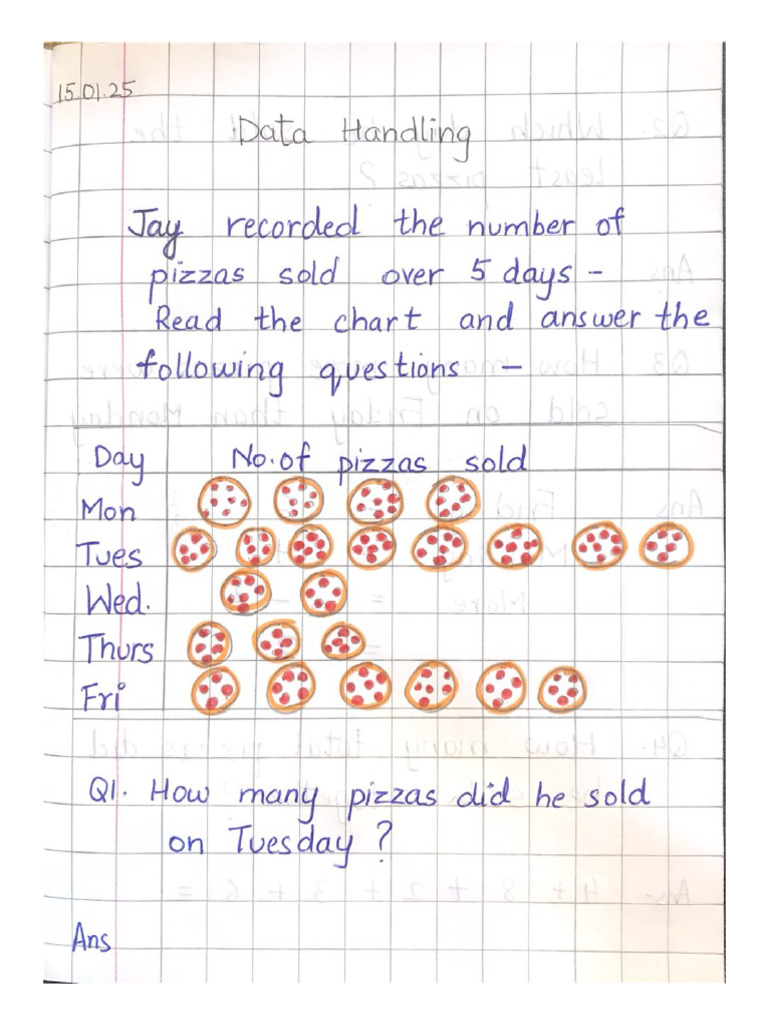 15.01.25
Data Handling
Jay recorded the number of
pizzas sold over 5 days -
Read the chart and answer the
following questions -
Day No. of pizzas sold
Mon
Tues
Wed.
Thurs
Fri
Q1. How many pizzas did he sold
on Tuesday ?
Ans